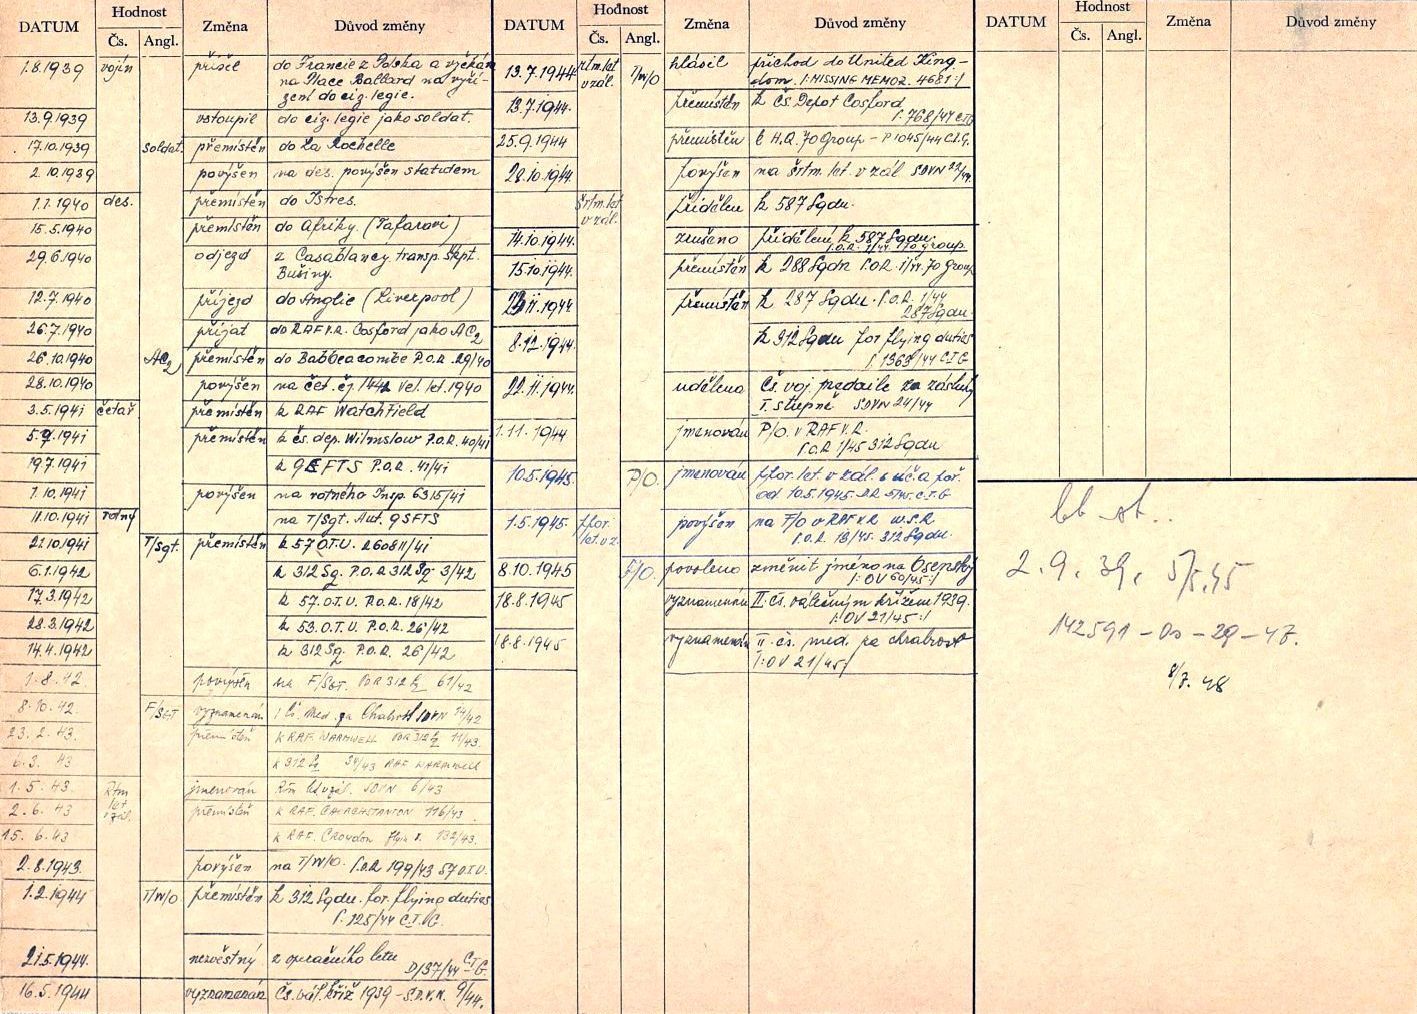 DATUM Hodnost Čs. Angl. Změna Důvod změny
1.8.1939 vojín přišel do Francie z Polska a vyčkán
na Place Ballard na vyří-
zení do ciz. legie.
13.9.1939 vstoupil do ciz. legie jako soldat.
17.10.1939 soldat. přemístěn do La Rochelle
2.10.1939 povýšen na des. povýšen statutem
1.1.1940 des. přemístěn do Istres.
15.5.1940 přemístěn do Afriky. (Tafaraoi)
29.6.1940 odjezd z Casablancy transp. škpt.
Bušiny.
12.7.1940 příjezd do Anglie (Liverpool)
26.7.1940 přijat do RAF V.R. Cosford jako AC2
26.10.1940 AC2 přemístěn do Babbeacombe P.O.R. 29/40
28.10.1940 povýšen na čet. čj. vel. let. 1940
3.5.1941 četař přemístěn k RAF Watchfield
5.7.1941 přemístěn k čs. dep. Wilmslow P.O.R. 40/41
19.7.1941 k 9EFTS P.O.R. 41/41
7.10.1941 povýšen na rotného Insp. 6315/41
11.10.1941 rotný na T/Sgt. Aut. 9SFTS
21.10.1941 T/Sgt. přemístěn k 57 O.T.U. 260811/41
6.1.1942 k 312 Sq. P.O.R 312 Sq 3/42
17.3.1942 k 57. O.T.U. P.O.R. 18/42
28.3.1942 k 53. O.T.U. P.O.R. 26/42
14.4.1942 k 312 Sq. P.O.R. 26/42
1.8.42. povýšen na F/Sgt. POR 312 Sq 61/42
8.10.42. F/Sgt vyznamenán I čs. Med. za Chabrost SDVN 14/42
23.2.43. přemístěn k RAF. WARMWELL POR 312 Sq 11/43.
6.3.43 k 312 Sq 34/43 RAF WARMWELL
1.5.43. Rtm let. v zál. jmenován Rtm v zál. SDVN 6/43
2.6.43 přemístěn k RAF. 116/43
15.6.43 k RAF. CROYDON 132/43.
2.8.1943. povýšen na T/W/O. P.O.R 199/43 57 O.T.U.
1.2.1944 T/W/O přemístěn k 312 Sqdu. for flying duties
P. 125/44 C.I.G.
21.5.1944. nezvěstný z operačního letu
D/37/44 C.I.G.
16.5.1944 vyznamenán Čs. vál. kříž 1939 - S.D.V.N. 9/44.
DATUM Hodnost Čs. Angl. Změna Důvod změny
13.7.1944 rtm. let. v zál. T/W/O hlásil příchod do United King-
dom. /:MISSING MEMOR. 4681:/
13.7.1944. přemístěn k Čs. Depot Cosford
P. 768/44 C.I.G
25.9.1944 přemístěn k H.Q. 70 Group - P 1045/44 C.I.G.
28.10.1944. povýšen na šrtm. let. v zál SDVN 22/44.
šrtm. let. v zál. přidělen k 587 Sqdu.
14.10.1944. zrušeno přidělení k 587 Sqdu.
P.O.R. 1/44. 70 group.
15.10.1944. přemístěn k 288 Sqdn P.O.R. 1/44. 70 Group
11.1944 přemístěn k 287 Sqdu. P.O.R. 1/44
287 Sqdu
8.12.1944. k 312 Sqdu for flying duties
P. 1363/44 C.I.G
22.11.1944. udělena Čs. voj. medaile za zásluhy
I. stupně SDVN 24/44
1.11.1944 jmenován P/O. v RAF V.R.
P.O.R 1/45 312 Sqdu
10.5.1945. P/O. jmenován ppor. let. v zál. s úč. a poř.
od 10.5.1945. C.I.G
1.5.1945. ppor. let. v z. povýšen na F/O v RAF V.R w.S.R
P.O.R. 18/45. 312 Sqdu.
8.10.1945 F/O. povoleno změnit jméno na Osenský
/:OV 60/45:/
18.8.1945 vyznamenán II. čs. válečným křížem 1939.
/:OV 21/45:/
18.8.1945 vyznamenán II. čs. med. za chrabrost
/:OV 21/45:/
DATUM Hodnost Čs. Angl. Změna Důvod změny
2.9.39. 5/5.45
142591-Os-29-47.
8/7.48